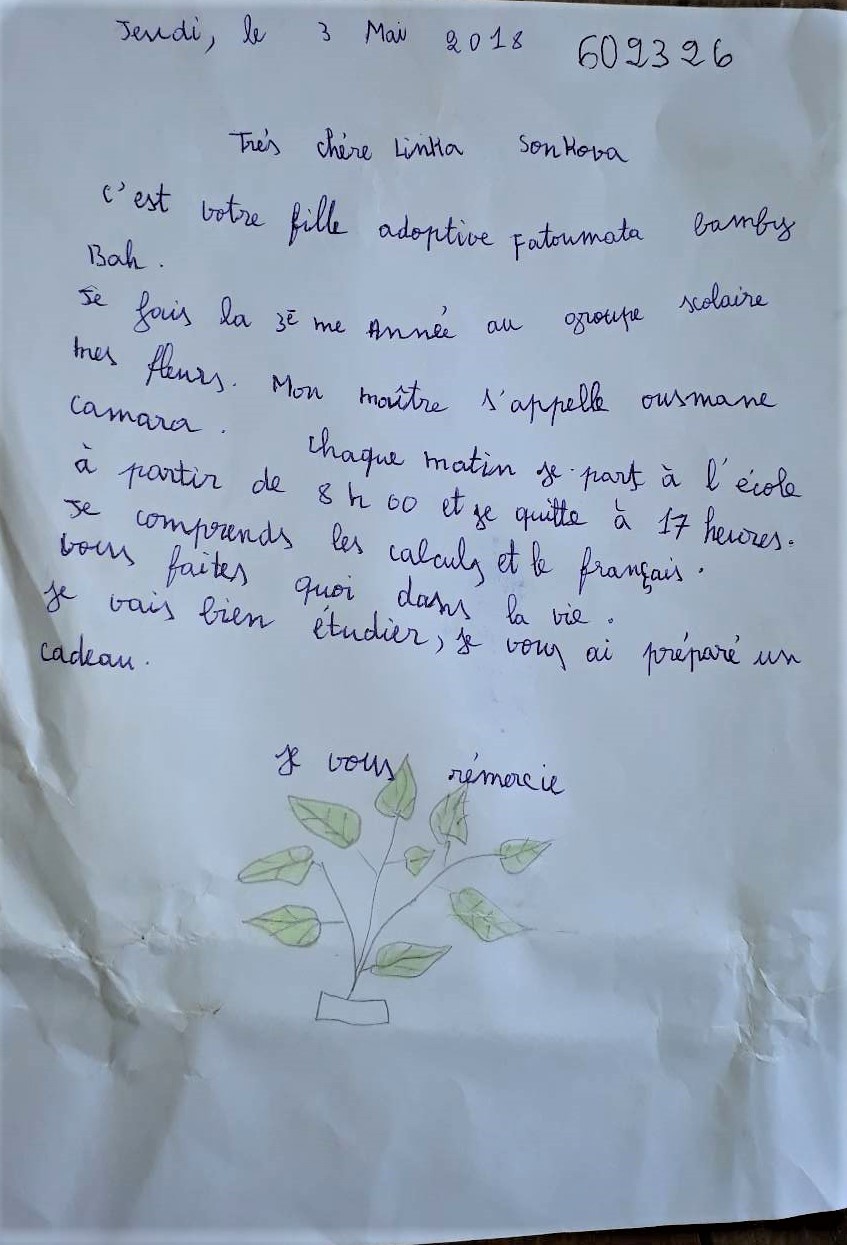 Jeudi, le 3 Mai 2018 602326
Trés chère Linka Sonkova
c'est votre fille adoptive Fatoumata bamby
Bah.
Je fais la 3ē me Année au groupe scolaire
mes fleurs. Mon maître s'appelle ousmane
camara. chaque matin je part à l'école
à partir de 8 h 00 et je quitte à 17 heures.
Je comprends les calculs et le français.
vous faites quoi dans la vie.
Je vais bien étudier, je vous ai préparé un
cadeau.
Je vous rémercie